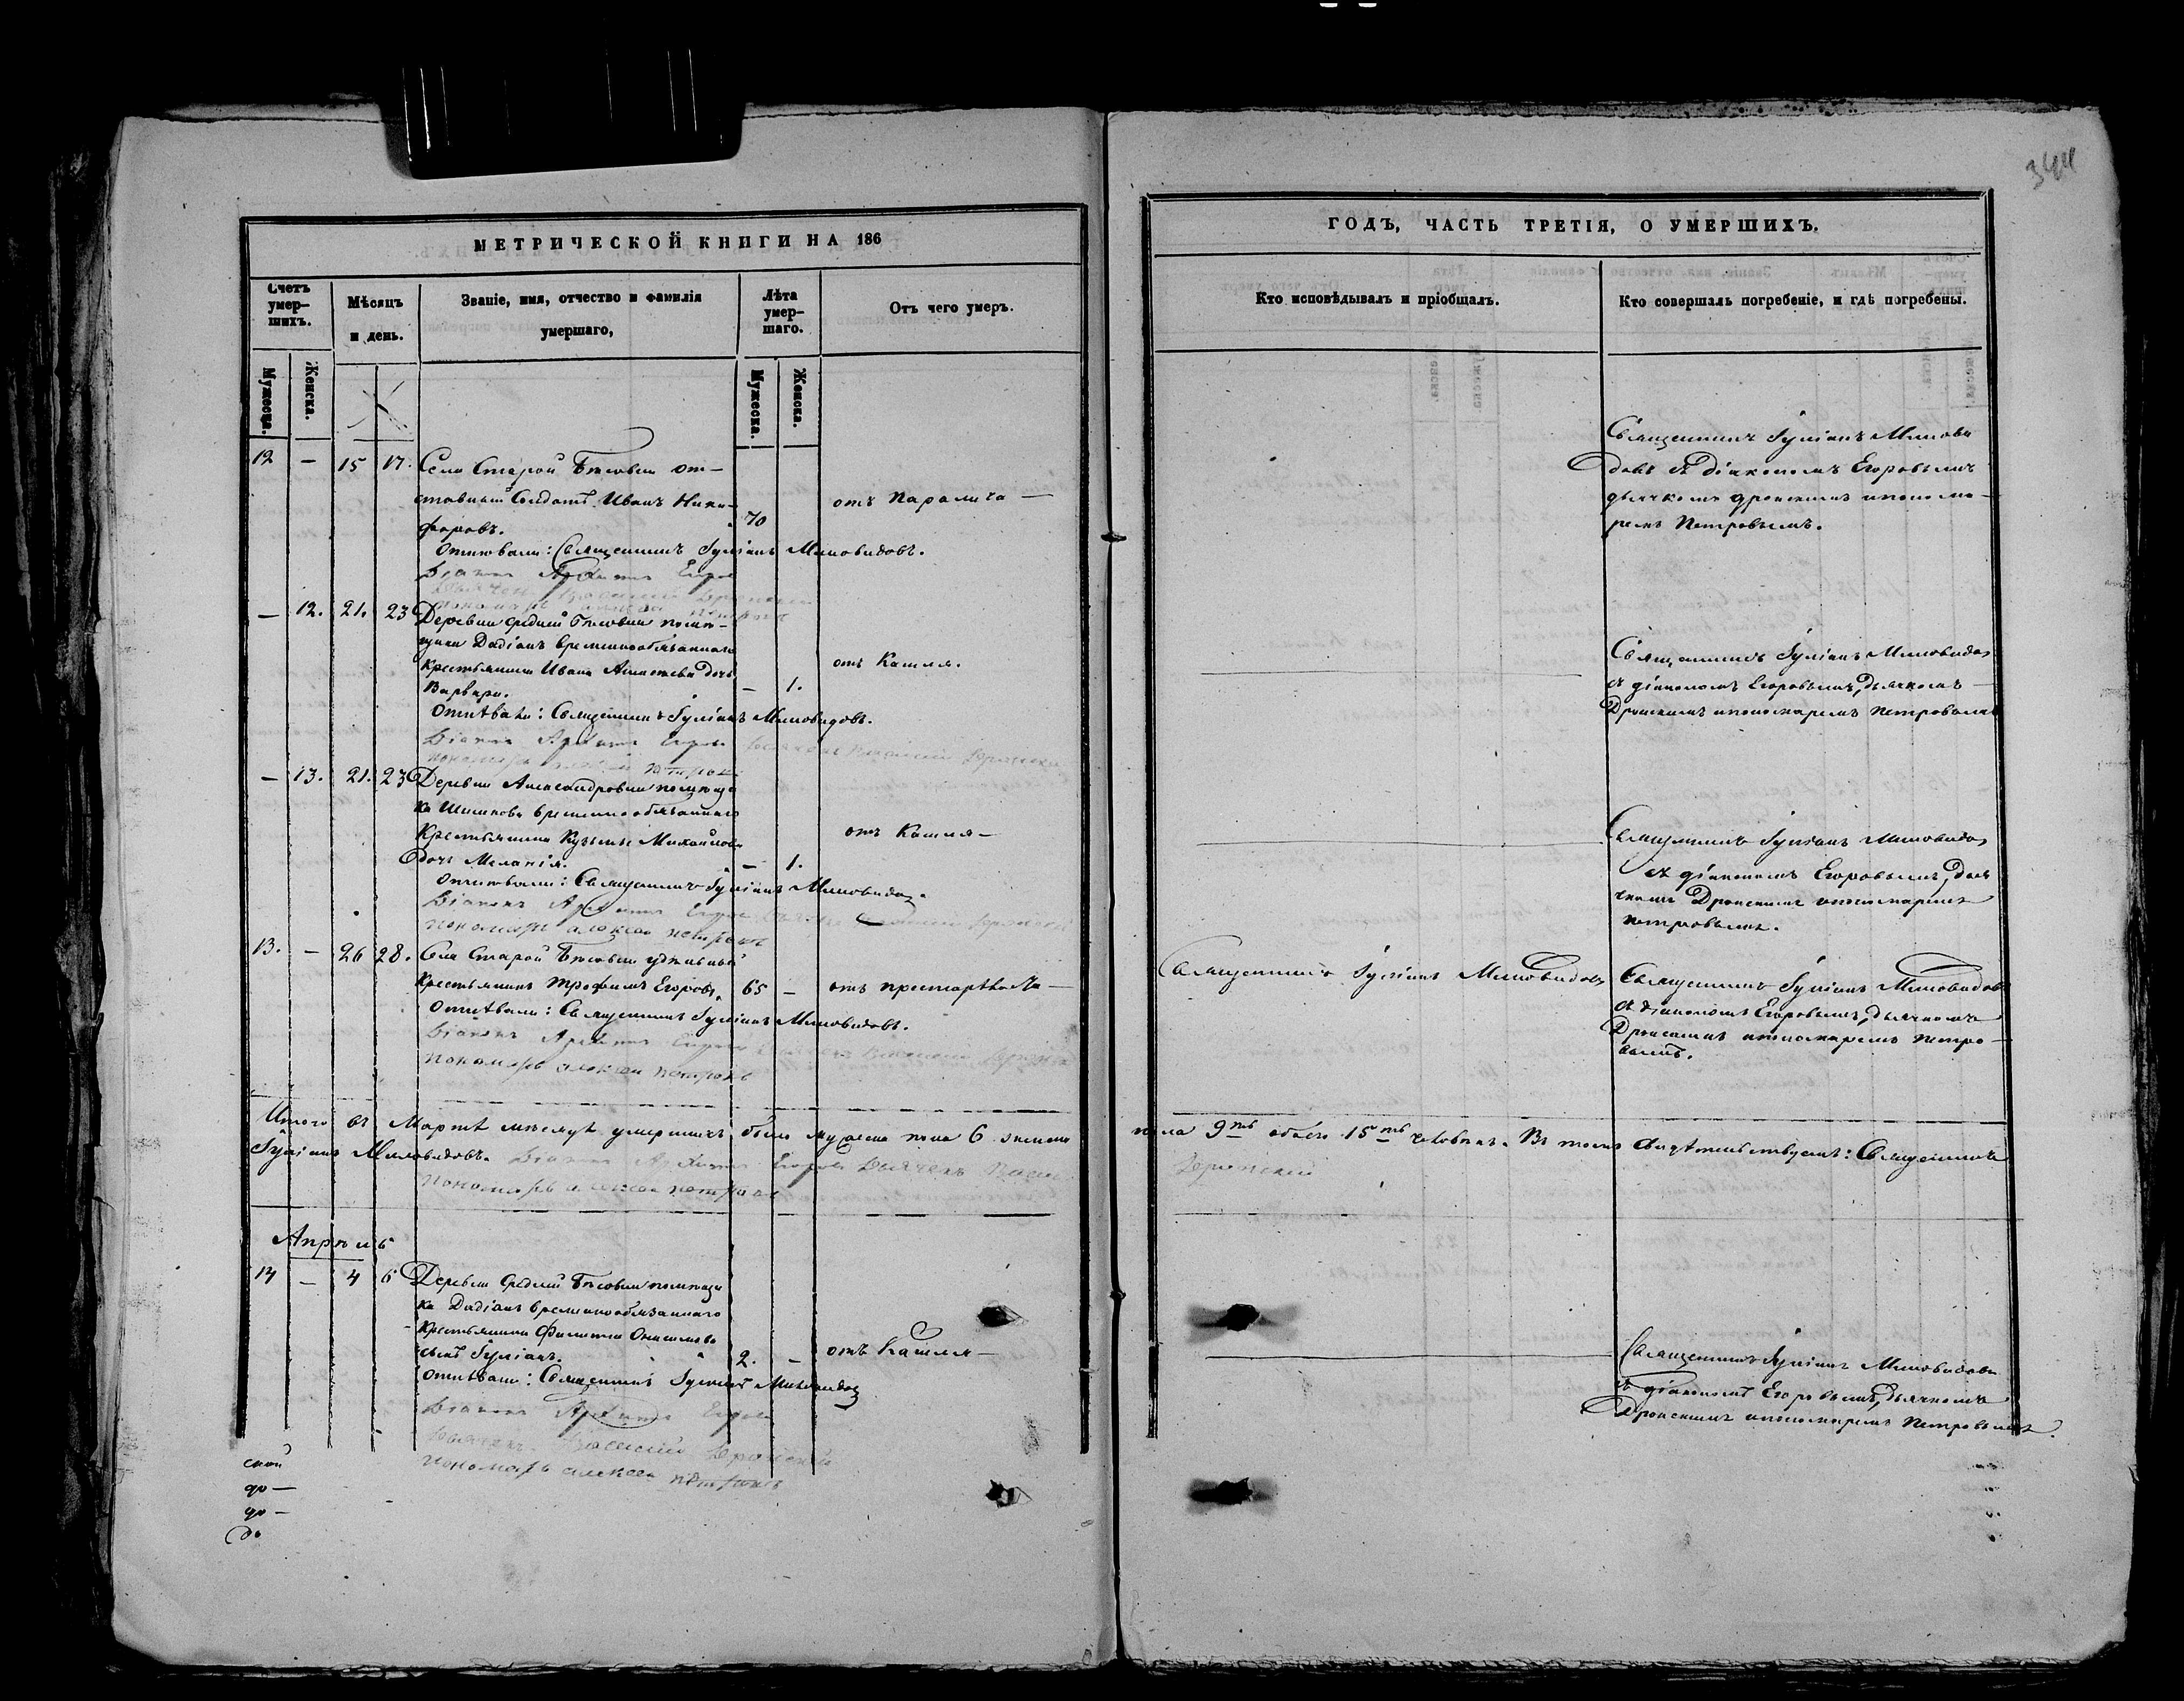 344
МЕТРИЧЕСКОЙ КНИГИ НА 186
ГОДЪ, ЧАСТЬ ТРЕТІЯ, О УМЕРШИХЪ.
Счетъ умер-
шихъ.
Мѣсяцъ
и день.
Званіе, имя, отчество и фамилія
умершаго,
Лѣта
умер-
шаго.
Отъ чего умеръ.
Кто исповѣдывалъ и пріобщалъ.
Кто совершалъ погребеніе, и гдѣ погребены.
Мужеска.
Женска.
Мужеска.
Женска.
12 — 15 17. Села Старой от-
ставный Солдатъ Иванъ Ники-
форовъ. 70 отъ Паралича —
Отпѣвали: Священникъ Іуліанъ Миловидовъ.
Діаконъ Архипъ Егоровъ
Священникъ Іуліанъ Милови
довъ съ діакономъ Егоровымъ
дьячкомъ Дронскимъ и понома-
ремъ Петровымъ.
— 12. 21. 23 Деревни Средней помѣ-
щика Дадіанъ временнообязаннаго
крестьянина Ивана дочь
Варвара. — 1. отъ Кашля.
Отпѣвали: Священникъ Іуліанъ Миловидовъ.
Діаконъ Архипъ Егоровъ
пономарь Алексей Петровъ
Священникъ Іуліанъ Миловидовъ
съ діакономъ Егоровымъ, дьячкомъ
Дронскимъ и пономаремъ Петровымъ
— 13. 21. 23 Деревни Александровки помѣщи
ка временнообязаннаго
Крестьянина Кузьмы Михайлова
дочь Меланія. — 1. отъ Кашля —
Отпѣвали: Священникъ Іуліанъ Миловидовъ.
Діаконъ Архипъ Егоровъ
пономарь Алексей Петровъ
Священникъ Іуліанъ Миловидовъ
съ діакономъ Егоровымъ, дья
чкомъ Дронскимъ и пономаремъ
Петровымъ.
13. — 26 28. Села Старой удѣльный
Крестьянинъ Трофимъ Егоровъ, 65 — отъ престарѣлости —
Отпѣвали: Священникъ Іуліанъ Миловидовъ.
Діаконъ Архипъ Егоровъ
пономарь Алексей Петровъ
Священникъ Іуліанъ Миловидовъ
Священникъ Іуліанъ Миловидовъ
съ діакономъ Егоровымъ, дьячкомъ
Дронскимъ и пономаремъ Петро-
вымъ.
Итого въ Мартѣ мѣсяцѣ умершихъ было мужеска пола 6 женска
пола 9ть обоего 15ть человѣкъ. Въ томъ свидѣтельствуемъ: Священникъ
Іуліанъ Миловидовъ. Діаконъ Архипъ Егоровъ Дьячекъ Васи
Дронский
пономарь Алексей Петровъ
Апрѣль
14 — 4 6 Деревни Средней помѣщи
ка Дадіанъ временнообязаннаго
крестьянина Филиппа
сынъ Іуліанъ. 2. — отъ Кашля —
Отпѣвали: Священникъ Іуліанъ Миловидовъ
Діаконъ Архипъ Егоровъ
Дьячекъ Василий Дронский
пономарь Алексей Петровъ
Священникъ Іуліанъ Миловидовъ
съ діакономъ Егоровымъ, дьячкомъ
Дронскимъ и пономаремъ Петровымъ.
ской
до —
до —
до